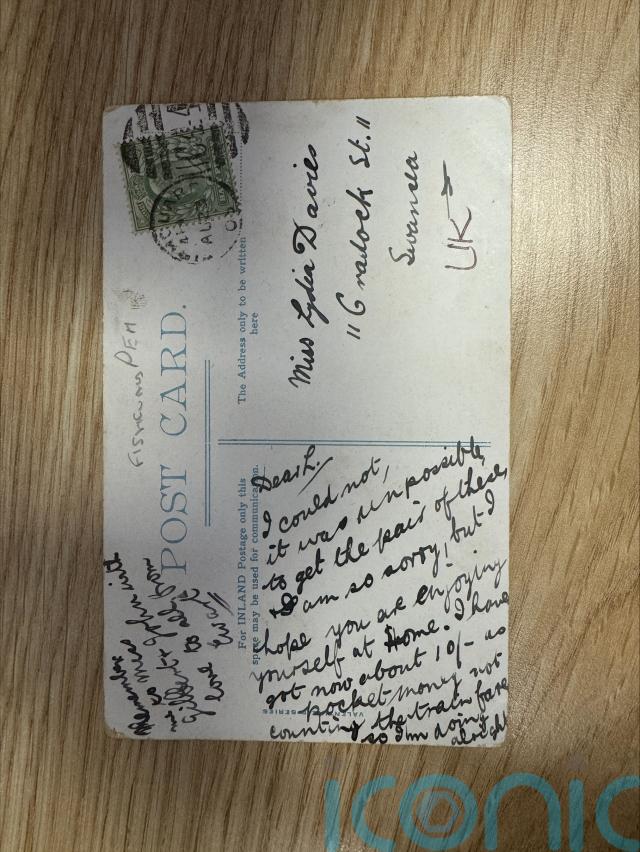 FISHGUARD PEM
POST CARD.
For INLAND Postage only this
space may be used for communication.
The Address only to be written
here
Dear L.
I could not,
it was unpossible,
to get the pair of these,
I am so sorry, but I
hope you are enjoying
yourself at Home. I have
got now about 10/- as
pocket money not
counting the train fare
so I'm doing
alright
Remember
Miss Gilbert
love
Ewart
Miss Lydia Davies
11 Cradock St.
Swansea
UK
VALENTINES SERIES
iconic